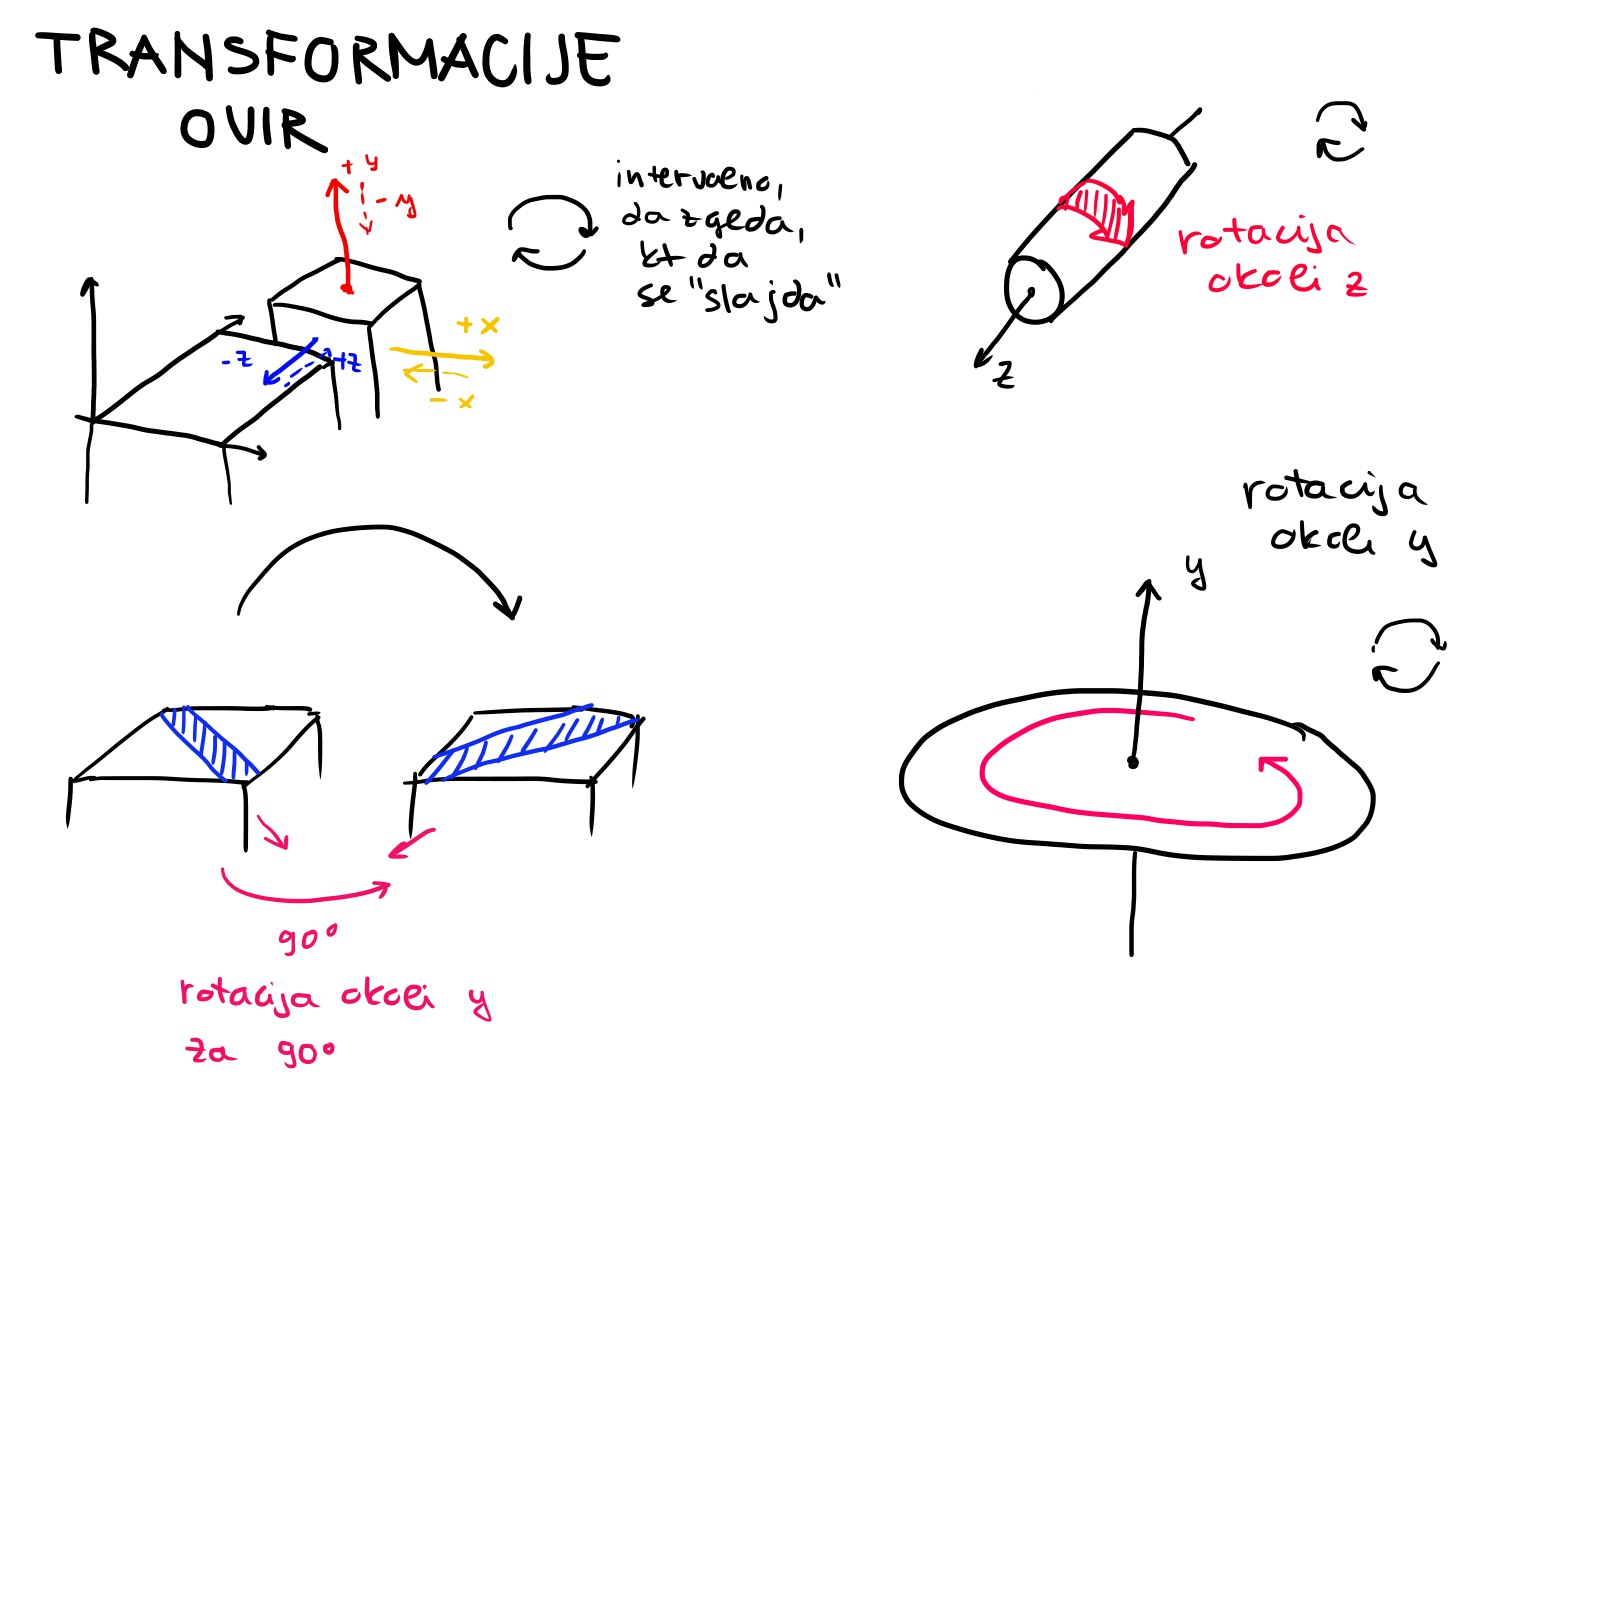 TRANSFORMACIJE
OVIR
+ y
- y
intervalno,
da zgleda,
kt da
se "slajda"
+ x
- x
- z
+z
rotacija
okoli z
z
rotacija
okoli y
y
90°
rotacija okoli y
za 90°